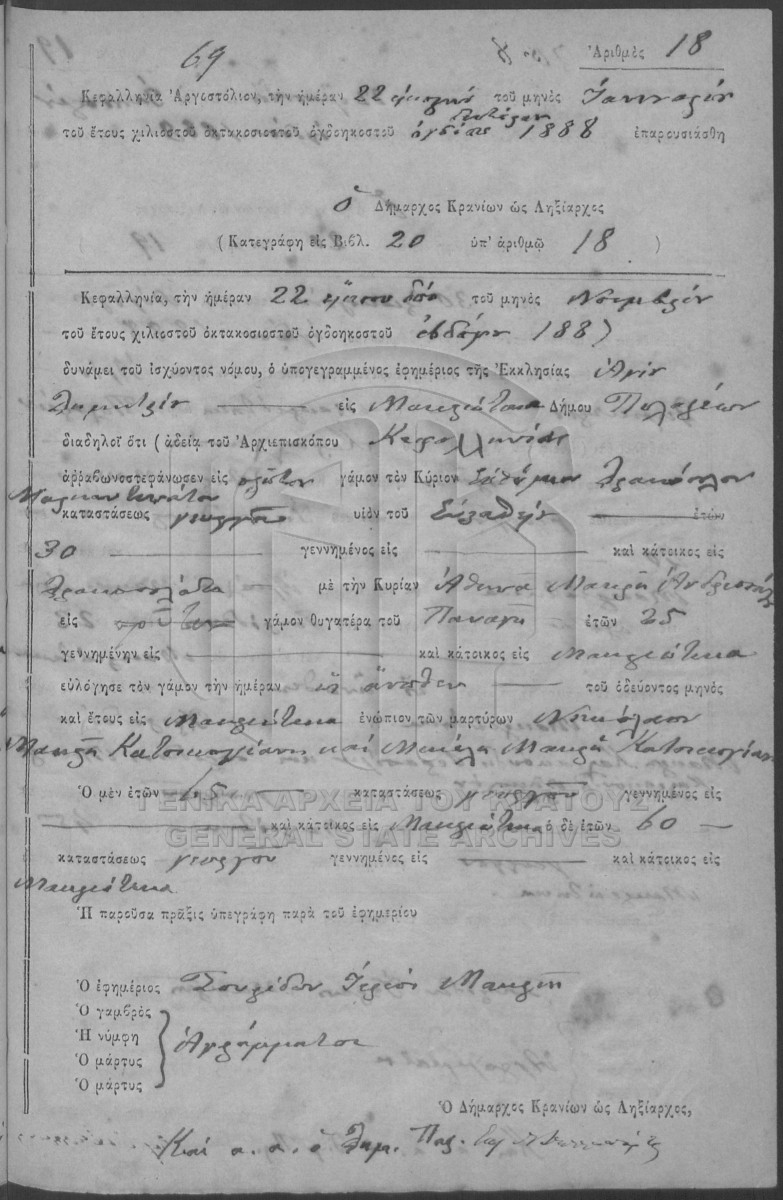 69 Ἀριθμὸς 18
Κεφαλληνία Ἀργοστόλιον, τὴν ἡμέραν 22 τοῦ μηνὸς Ἰαννουαρίου
τοῦ ἔτους χιλιοστοῦ ὀκτακοσιοστοῦ ὀγδοηκοστοῦ ὀγδόου 1888 ἐπαρουσιάσθη
ὁ Δήμαρχος Κρανίων ὡς Ληξίαρχος
(Κατεγράφη εἰς Βιβλ. 20 ὑπ' ἀριθμῷ 18 )
Κεφαλληνία, τὴν ἡμέραν 22 εἴκοσι δύο τοῦ μηνὸς Νοεμβρίου
τοῦ ἔτους χιλιοστοῦ ὀκτακοσιοστοῦ ὀγδοηκοστοῦ ἑβδόμου 1887
δυνάμει τοῦ ἰσχύοντος νόμου, ὁ ὑπογεγραμμένος ἐφημέριος τῆς Ἐκκλησίας Ἁγίου
Δημητρίου εἰς Μακρυώτικα Δήμου Πυλαρέων
διαδηλοῖ ὅτι (ἀδείᾳ τοῦ Ἀρχιεπισκόπου Κεφαλληνίας
ἀρραβωνοστεφάνωσεν εἰς πρῶτον γάμον τὸν Κύριον Δρακόπουλον
καταστάσεως γεωργοῦ υἱὸν τοῦ ἐτῶν
30 γεννημένος εἰς καὶ κάτοικος εἰς
Δρακοπουλάδα μὲ τὴν Κυρίαν Ἀθηνᾶ Μακρῆ
εἰς πρῶτον γάμον θυγατέρα τοῦ Παναγῆ ἐτῶν 25
γεννημένην εἰς καὶ κάτοικος εἰς Μακρυώτικα
εὐλόγησε τὸν γάμον τὴν ἡμέραν ἄνωθεν τοῦ ὁδεύοντος μηνὸς
καὶ ἔτους εἰς Μακρυώτικα ἐνώπιον τῶν μαρτύρων Νικόλαον
Μακρῆ καὶ Μακρῆ
Ὁ μὲν ἐτῶν καταστάσεως γεωργοῦ γεννημένος εἰς
καὶ κάτοικος εἰς Μακρυώτικα ὁ δὲ ἐτῶν 60
καταστάσεως γεωργοῦ γεννημένος εἰς καὶ κάτοικος εἰς
Μακρυώτικα
Ἡ παροῦσα πρᾶξις ὑπεγράφη παρὰ τοῦ ἐφημερίου
Ὁ ἐφημέριος Σπυρίδων Ἱερεὺς Μακρῆς
Ὁ γαμβρὸς
Ἡ νύμφη Ἀγράμματοι
Ὁ μάρτυς
Ὁ μάρτυς
Ὁ Δήμαρχος Κρανίων ὡς Ληξίαρχος,
Καὶ α. α. ὁ Δημ. Παρ.
ΓΕΝΙΚΑ ΑΡΧΕΙΑ ΤΟΥ ΚΡΑΤΟΥΣ
GENERAL STATE ARCHIVES